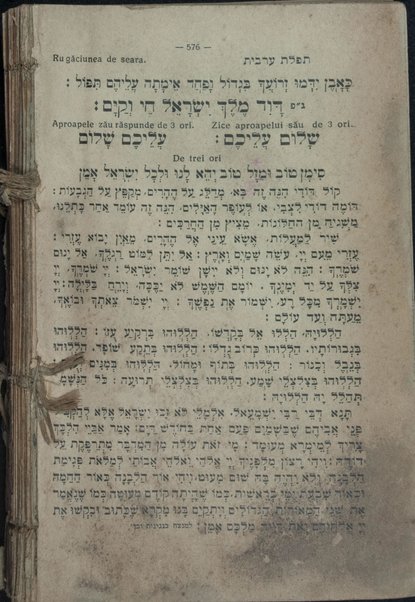 — 576 —
Rugăciunea de seara. תפלת ערבית
כָּאָבֶן יִדְּמוּ זְרוֹעֲךָ בִּגְדוֹל וָפַחַד אֵימָתָה עֲלֵיהֶם תִּפּוֹל :
ג״פ דָּוִד מֶלֶךְ יִשְׂרָאֵל חַי וְקַיָּם :
Aproapele zău răspunde de 3 ori. Zice aproapelui său de 3 ori.
שָׁלוֹם עֲלֵיכֶם : עֲלֵיכֶם שָׁלוֹם
De trei ori
סִימָן טוֹב וּמַזָּל טוֹב יְהֵא לָנוּ וּלְכָל יִשְׂרָאֵל אָמֵן
קוֹל דּוֹדִי הִנֵּה זֶה בָּא, מְדַלֵּג עַל הֶהָרִים, מְקַפֵּץ עַל הַגְּבָעוֹת :
דּוֹמֶה דוֹדִי לִצְבִי, אוֹ לְעוֹפֶר הָאַיָּלִים, הִנֵּה זֶה עוֹמֵד אַחַר כָּתְלֵנוּ,
מַשְׁגִּיחַ מִן הַחַלּוֹנוֹת, מֵצִיץ מִן הַחֲרַכִּים :
שִׁיר לַמַּעֲלוֹת, אֶשָּׂא עֵינַי אֶל הֶהָרִים, מֵאַיִן יָבוֹא עֶזְרִי :
עֶזְרִי מֵעִם יְיָ, עֹשֵׂה שָׁמַיִם וָאָרֶץ : אַל יִתֵּן לַמּוֹט רַגְלֶךָ, אַל יָנוּם
שֹׁמְרֶךָ : הִנֵּה לֹא יָנוּם וְלֹא יִישָׁן שׁוֹמֵר יִשְׂרָאֵל : יְיָ שֹׁמְרֶךָ, יְיָ
צִלְּךָ עַל יַד יְמִינֶךָ, יוֹמָם הַשֶּׁמֶשׁ לֹא יַכֶּכָּה, וְיָרֵחַ בַּלָּיְלָה : יְיָ
יִשְׁמָרְךָ מִכָּל רָע, יִשְׁמוֹר אֶת נַפְשֶׁךָ : יְיָ יִשְׁמֹר צֵאתְךָ וּבוֹאֶךָ,
מֵעַתָּה וְעַד עוֹלָם :
הַלְלוּיָהּ, הַלְלוּ אֵל בְּקָדְשׁוֹ, הַלְלוּהוּ בִּרְקִיעַ עֻזּוֹ : הַלְלוּהוּ
בִּגְבוּרוֹתָיו, הַלְלוּהוּ כְּרוֹב גֻּדְלוֹ : הַלְלוּהוּ בְּתֵקַע שׁוֹפָר, הַלְלוּהוּ
בְּנֵבֶל וְכִנּוֹר : הַלְלוּהוּ בְּתוֹף וּמָחוֹל, הַלְלוּהוּ בְּמִנִּים
הַלְלוּהוּ בְּצִלְצְלֵי שָׁמַע, הַלְלוּהוּ בְּצִלְצְלֵי תְרוּעָה : כֹּל הַנְּשָׁמָה
תְּהַלֵּל יָהּ הַלְלוּיָהּ :
תָּנָא דְּבֵי רַבִּי יִשְׁמָעֵאל, אִלְמָלֵי לֹא זָכוּ יִשְׂרָאֵל אֶלָּא לְהַקְבִּיל
פְּנֵי אֲבִיהֶם שֶׁבַּשָּׁמַיִם פַּעַם אַחַת בַּחוֹדֶשׁ דַּיָּם : אָמַר אַבַּיֵי הִלְכָּךְ
צָרִיךְ לְמֵימְרָא מְעוּמָד : מִי זֹאת עוֹלָה מִן הַמִּדְבָּר מִתְרַפֶּקֶת עַל
דּוֹדָהּ : וִיהִי רָצוֹן מִלְּפָנֶיךָ יְיָ אֱלֹהַי וֵאלֹהֵי אֲבוֹתַי לְמַלֹּאת פְּגִימַת
הַלְּבָנָה, וְלֹא יִהְיֶה בָּהּ שׁוּם מִעוּט, וִיהִי אוֹר הַלְּבָנָה כְּאוֹר הַחַמָּה
וּכְאוֹר שִׁבְעַת יְמֵי בְרֵאשִׁית, כְּמוֹ שֶׁהָיְתָה קוֹדֶם מִעוּטָהּ כְּמוֹ שֶׁנֶּאֱמַר
אֶת שְׁנֵי הַמְּאוֹרוֹת הַגְּדוֹלִים וְיִתְקַיֵּם בָּנוּ מִקְרָא שֶׁכָּתוּב וּבִקְשׁוּ אֶת
יְיָ אֱלֹהֵיהֶם וְאֵת דָּוִיד מַלְכָּם אָמֵן : למנצח בנגינות וכו׳